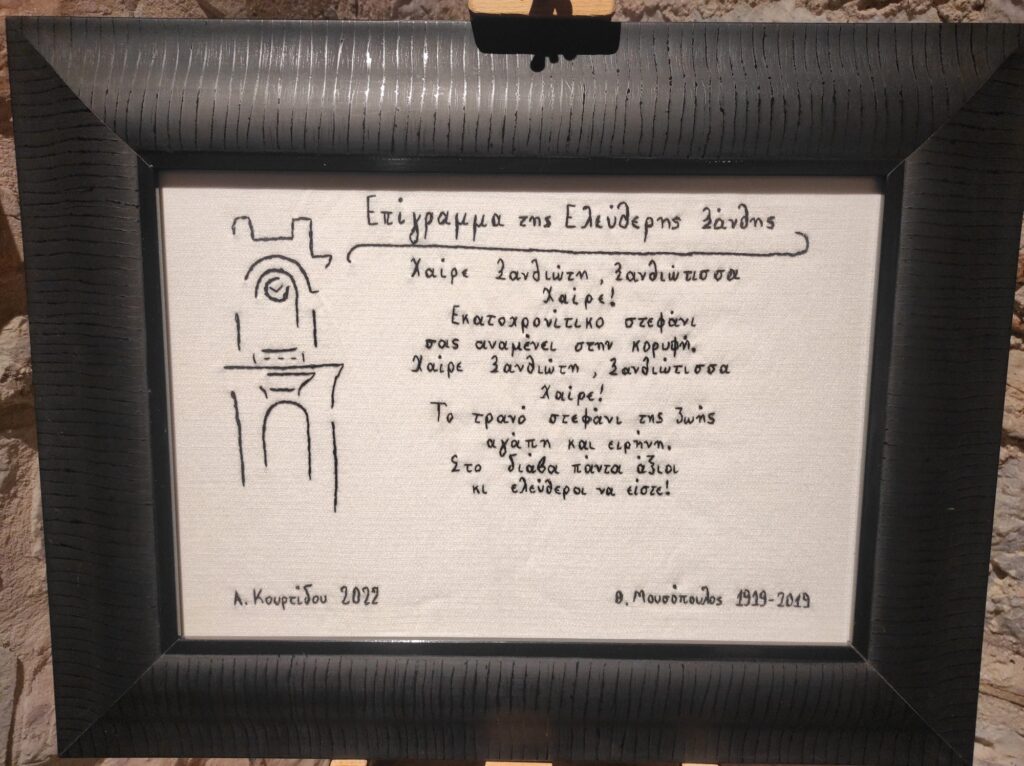 Επίγραμμα της Ελεύθερης Ξάνθης
Χαίρε Ξανθιώτη, Ξανθιώτισσα
Χαίρε!
Εκατοχρονίτικο στεφάνι
σας αναμένει στην κορυφή.
Χαίρε Ξανθιώτη, Ξανθιώτισσα
Χαίρε!
Το τρανό στεφάνι της Ζωής
αγάπη και ειρήνη.
Στο διάβα πάντα άξιοι
κι ελεύθεροι να είστε!
Α. Κουρτίδου 2022
Θ. Μουσόπουλος 1919-2019